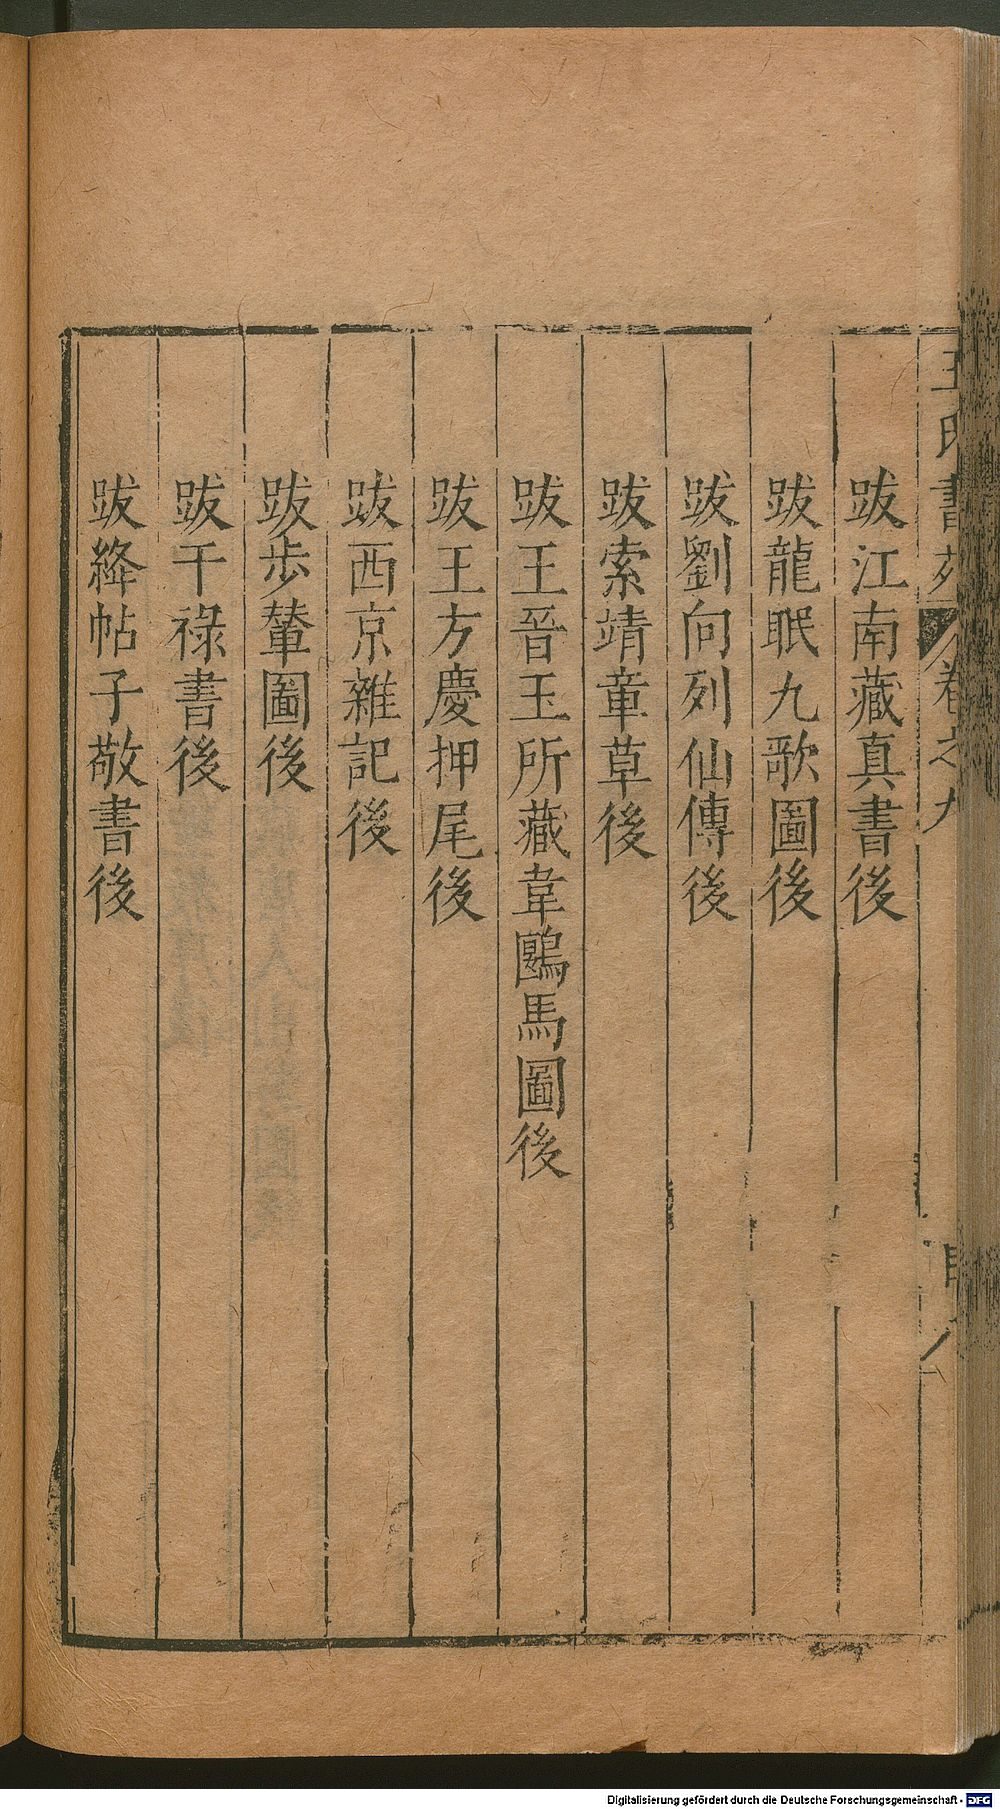 王氏書苑 卷之九 目 八
跋江南藏真書後
跋龍眠九歌圖後
跋劉向列仙傳後
跋索靖章草後
跋王晉玉所藏韋鶠馬圖後
跋王方慶押尾後
跋西京雜記後
跋步輦圖後
跋干祿書後
跋絳帖子敬書後
Digitalisierung gefördert durch die Deutsche Forschungsgemeinschaft - DFG